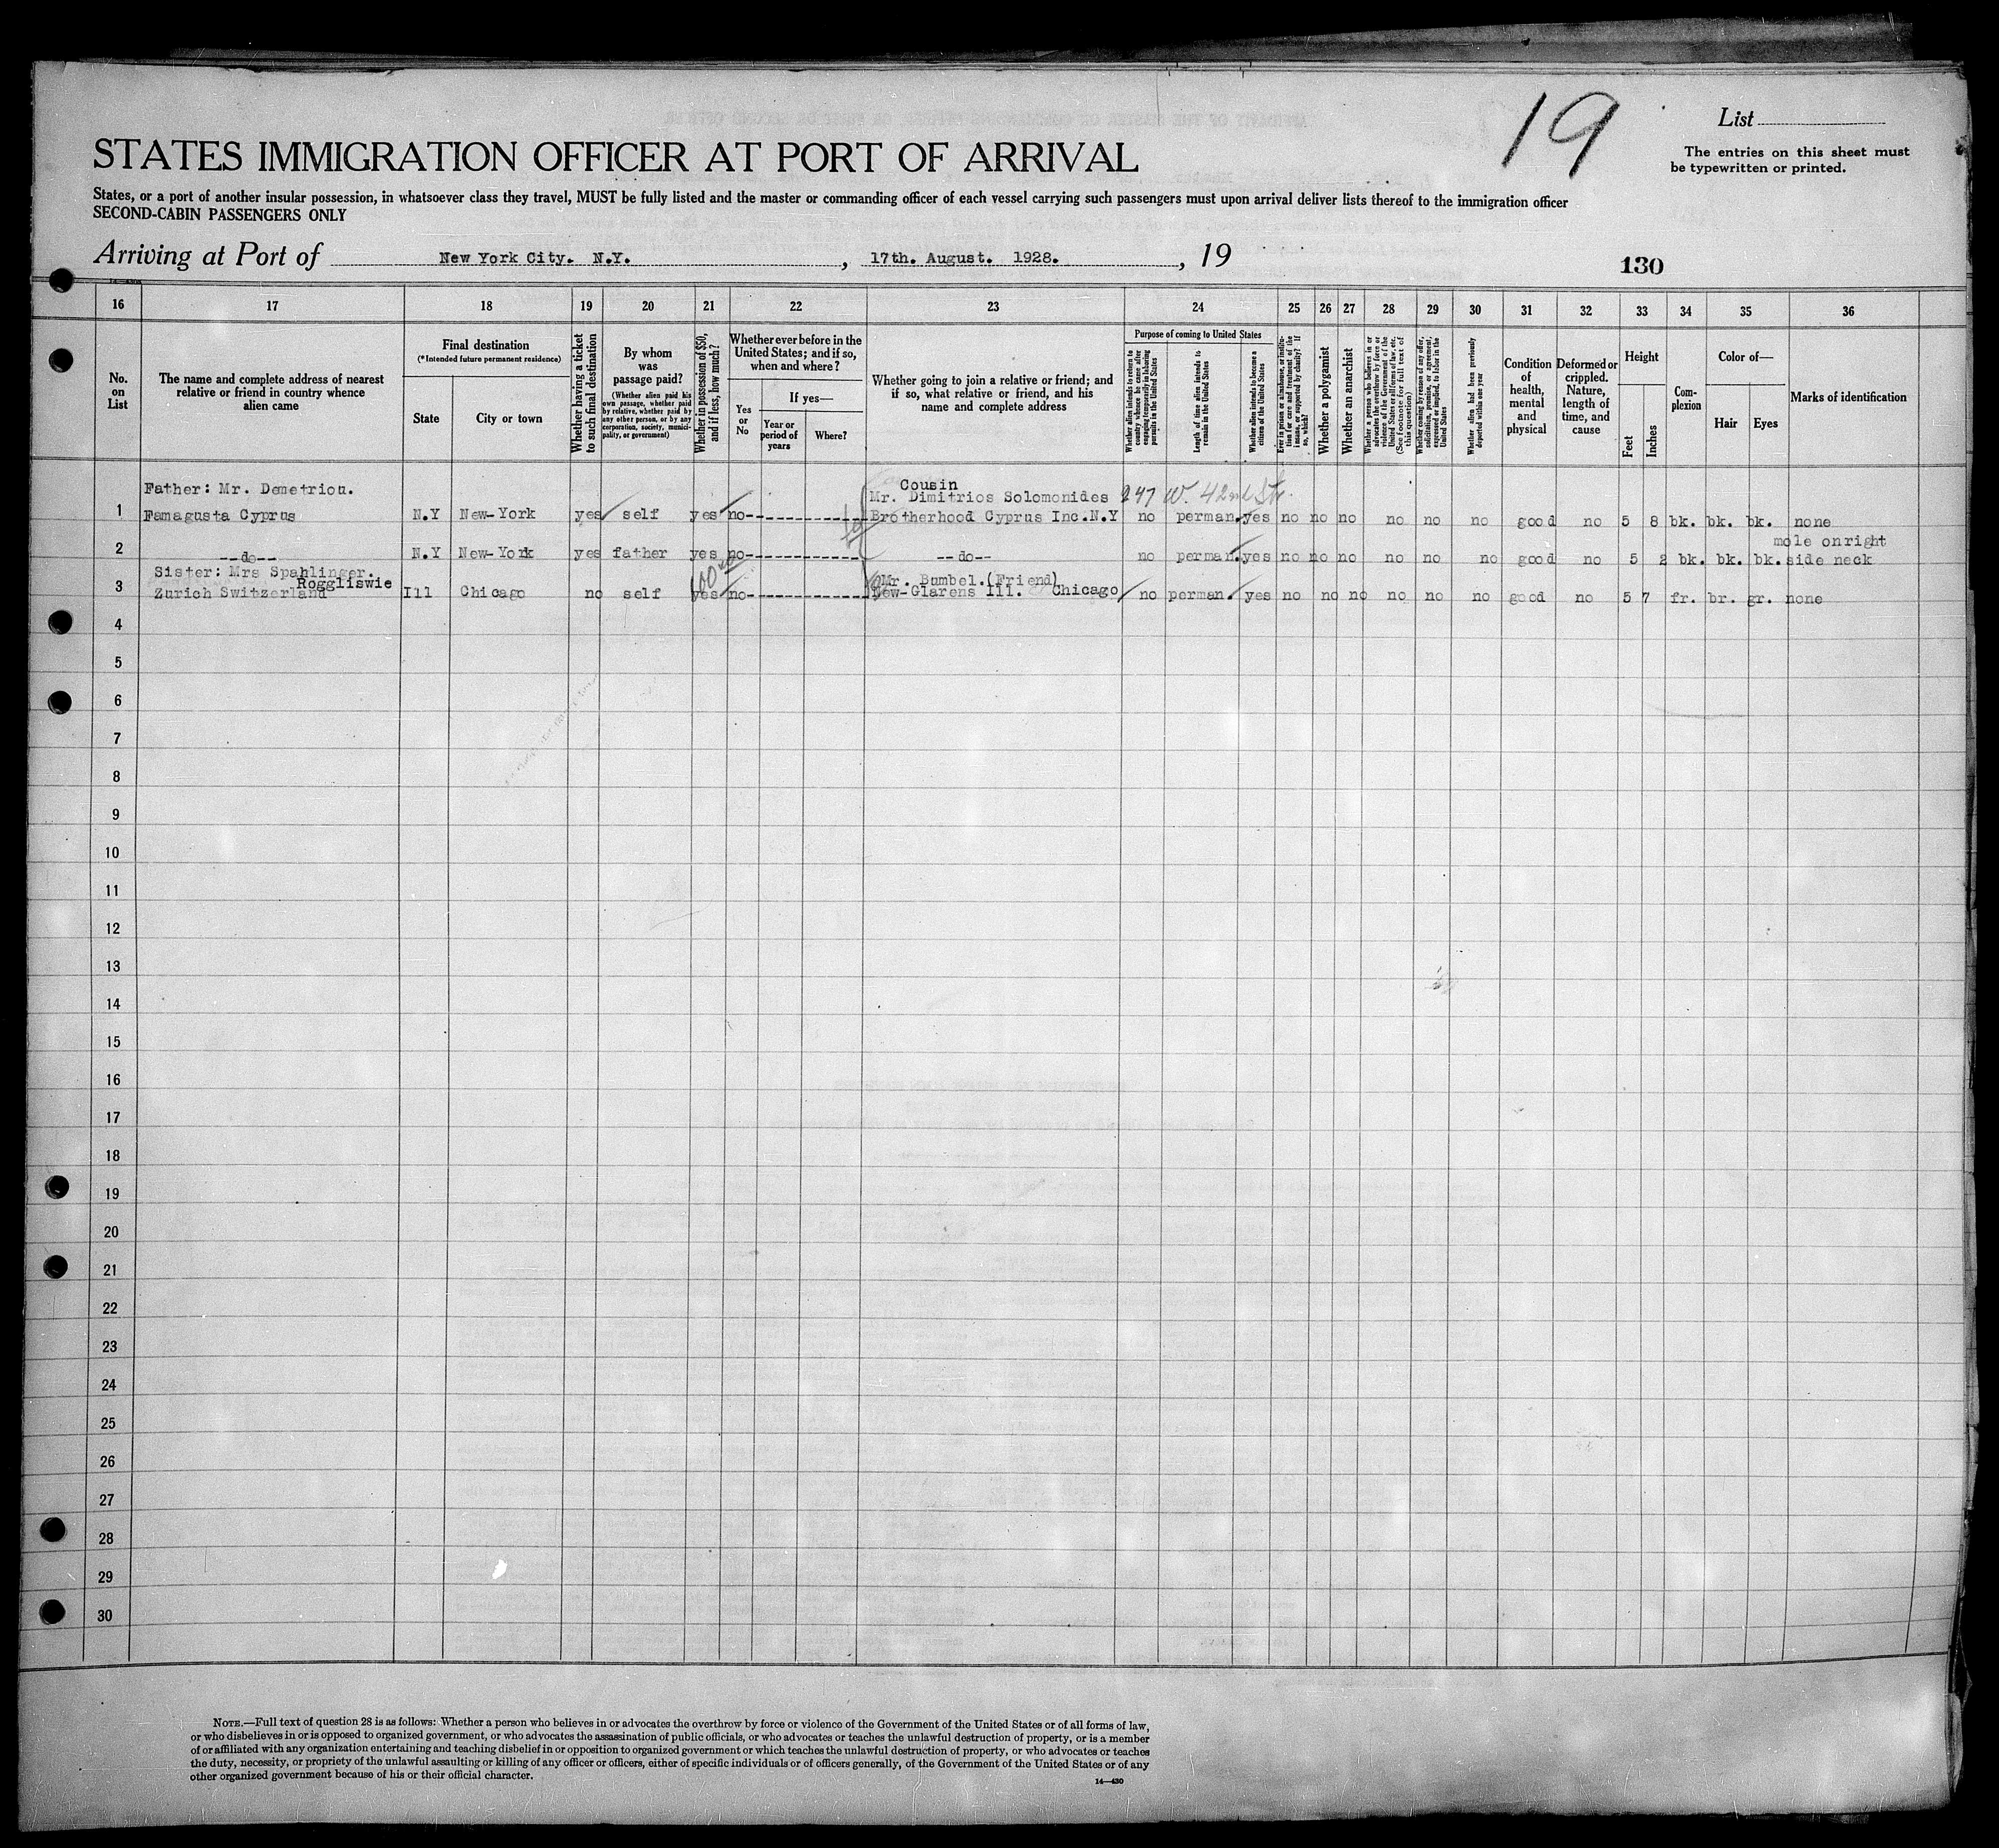 19
List
The entries on this sheet must
be typewritten or printed.
STATES IMMIGRATION OFFICER AT PORT OF ARRIVAL
States, or a port of another insular possession, in whatsoever class they travel, MUST be fully listed and the master or commanding officer of each vessel carrying such passengers must upon arrival deliver lists thereof to the immigration officer
SECOND-CABIN PASSENGERS ONLY
Arriving at Port of New York City. N.Y. , 17th. August. 1928. , 19
130
16 17 18 19 20 21 22 23 24 25 26 27 28 29 30 31 32 33 34 35 36
No. on List
The name and complete address of nearest relative or friend in country whence alien came
Final destination
(*Intended future permanent residence)
State
City or town
Whether having a ticket to such final destination
By whom was passage paid?
(Whether alien paid his own passage, whether paid by relative, whether paid by any other person, or by any corporation, society, municipality, or government)
Whether in possession of $50, and if less, how much?
Whether ever before in the United States; and if so, when and where?
Yes or No
If yes—
Year or period of years
Where?
Whether going to join a relative or friend; and if so, what relative or friend, and his name and complete address
Purpose of coming to United States
Whether alien intends to return to country whence he came after engaging temporarily in laboring pursuits in the United States
Length of time alien intends to remain in the United States
Whether alien intends to become a citizen of the United States
Ever in prison or almshouse, or institution for care and treatment of the insane, or supported by charity? If so, which?
Whether a polygamist
Whether an anarchist
Whether a person who believes in or advocates the overthrow by force or violence of the Government of the United States or all forms of law, etc. (See footnote for full text of this question)
Whether coming by reason of any offer, solicitation, promise, or agreement, expressed or implied, to labor in the United States
Whether alien had been previously deported within one year
Condition of health, mental and physical
Deformed or crippled. Nature, length of time, and cause
Height
Feet
Inches
Complexion
Color of—
Hair
Eyes
Marks of identification
Cousin
Father: Mr. Demetriou. Mr. Dimitrios Solomonides 247 W. 42nd St.
1 Famagusta Cyprus N.Y New-York yes self yes no Brotherhood Cyprus Inc.N.Y no perman. yes no no no no no no good no 5 8 bk. bk. bk. none
mole onright
2 --do-- N.Y New-York yes father yes no --do-- no perman. yes no no no no no no good no 5 2 bk. bk. bk. side neck
Sister: Mrs Spahlinger. Mr. Bumbel.(Friend)
Roggliswie
3 Zurich Switzerland Ill Chicago no self yes no New-Glarens Ill. Chicago no perman. yes no no no no no no good no 5 7 fr. br. gr. none
4
5
6
7
8
9
10
11
12
13
14
15
16
17
18
19
20
21
22
23
24
25
26
27
28
29
30
NOTE.—Full text of question 28 is as follows: Whether a person who believes in or advocates the overthrow by force or violence of the Government of the United States or of all forms of law,
or who disbelieves in or is opposed to organized government, or who advocates the assassination of public officials, or who advocates or teaches the unlawful destruction of property, or is a member
of or affiliated with any organization entertaining and teaching disbelief in or opposition to organized government or which teaches the unlawful destruction of property, or who advocates or teaches
the duty, necessity, or propriety of the unlawful assaulting or killing of any officer or officers, either of specific individuals or of officers generally, of the Government of the United States or of any
other organized government because of his or their official character.
14—430